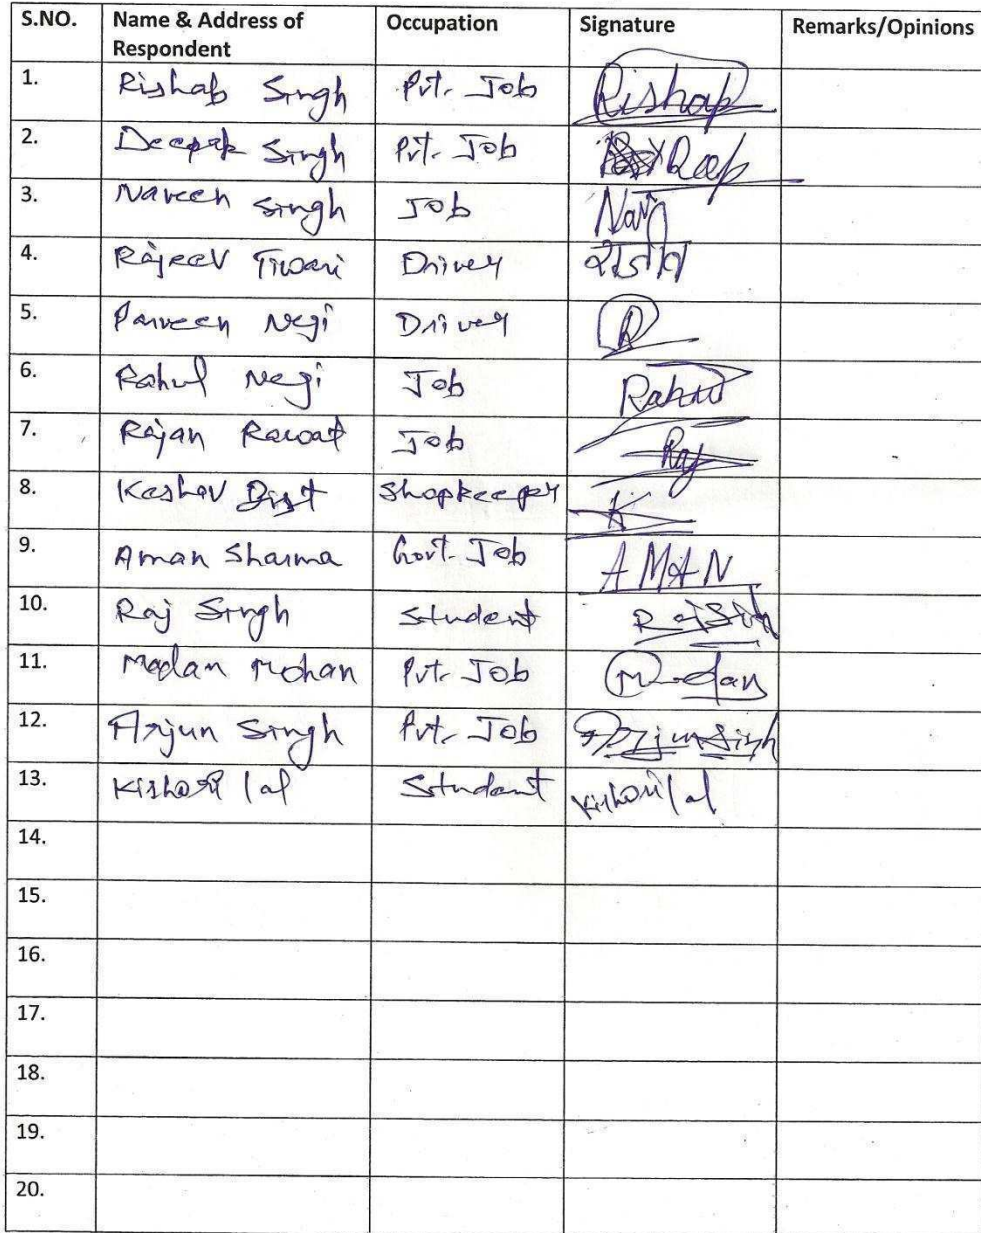 S.NO. Name & Address of Respondent Occupation Signature Remarks/Opinions
1. Rishab Singh Pvt. Job Rishap
2. Deepak Singh Pvt. Job
3. Naveen Singh Job Nav
4. Rajeev Tiwari Driver राजीव
5. Parveen Negi Driver R
6. Rahul Negi Job Rahul
7. Rajan Rawat Job Raj
8. Keshav Bist Shopkeeper K
9. Aman Sharma Govt. Job AMAN
10. Raj Singh Student
11. Madan Mohan Pvt. Job Madan
12. Arjun Singh Pvt. Job Arjun Singh
13. Kishori lal Student Kishori lal
14.
15.
16.
17.
18.
19.
20.